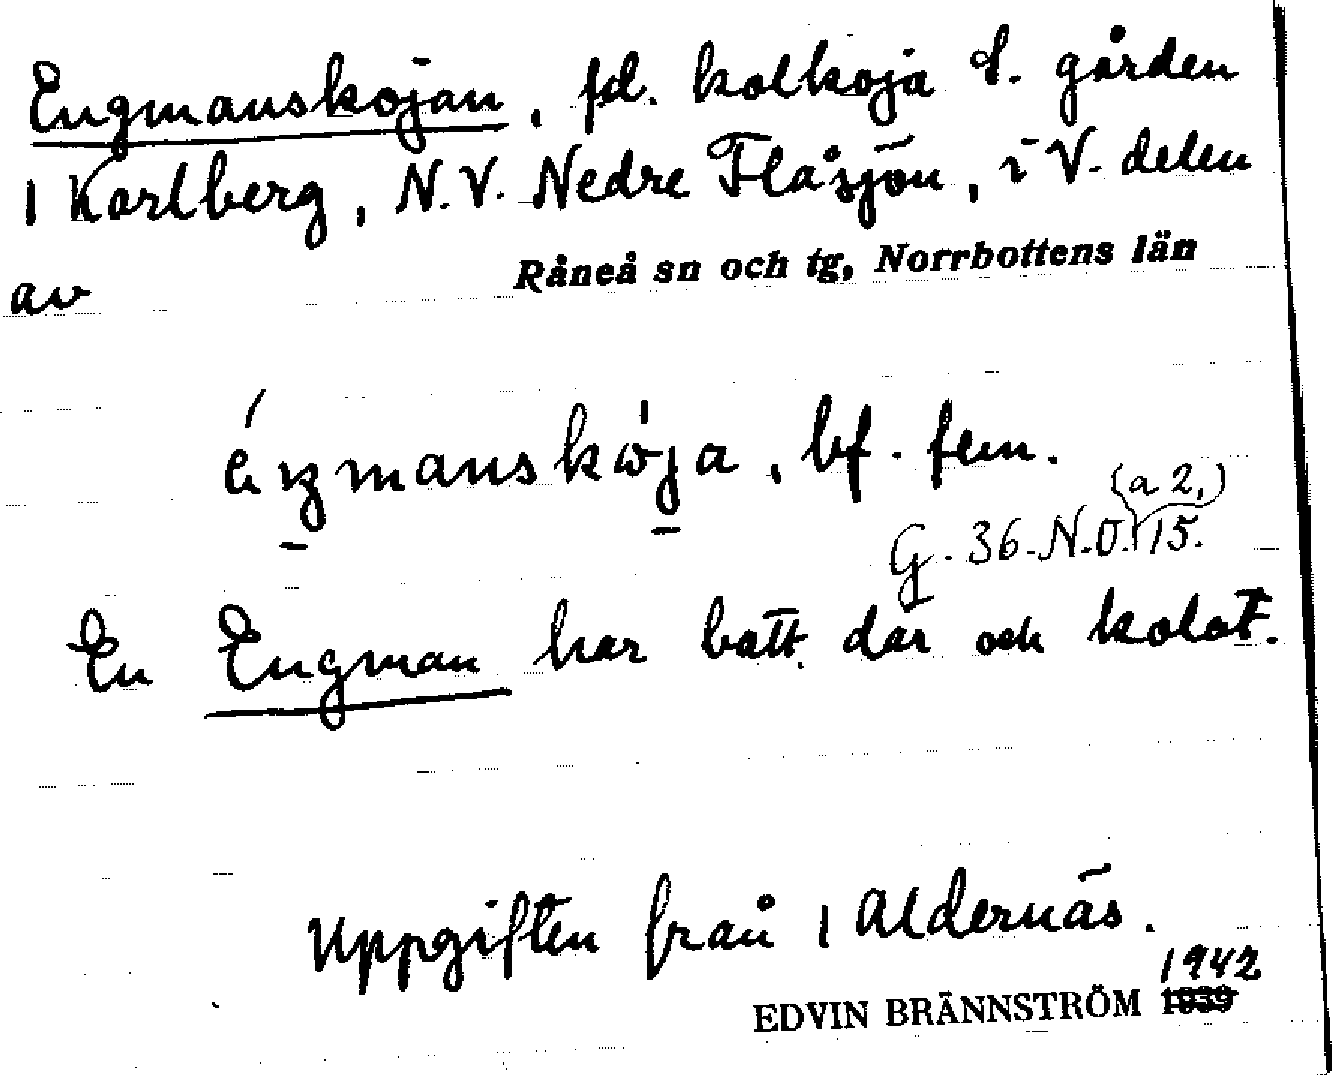 Engmanskojan, fd. kolkoja S. gården
1 Karlberg, N.V. Nedre Flåsjön, i V. delen
av Råneå sn och tg, Norrbottens län
éŋmansköja, bf. fem.
(a 2,)
G. 36. N.O. 15.
En Engman har bott där och kolat.
Uppgiften från 1 Aldernäs.
1942
EDVIN BRÄNNSTRÖM 1939